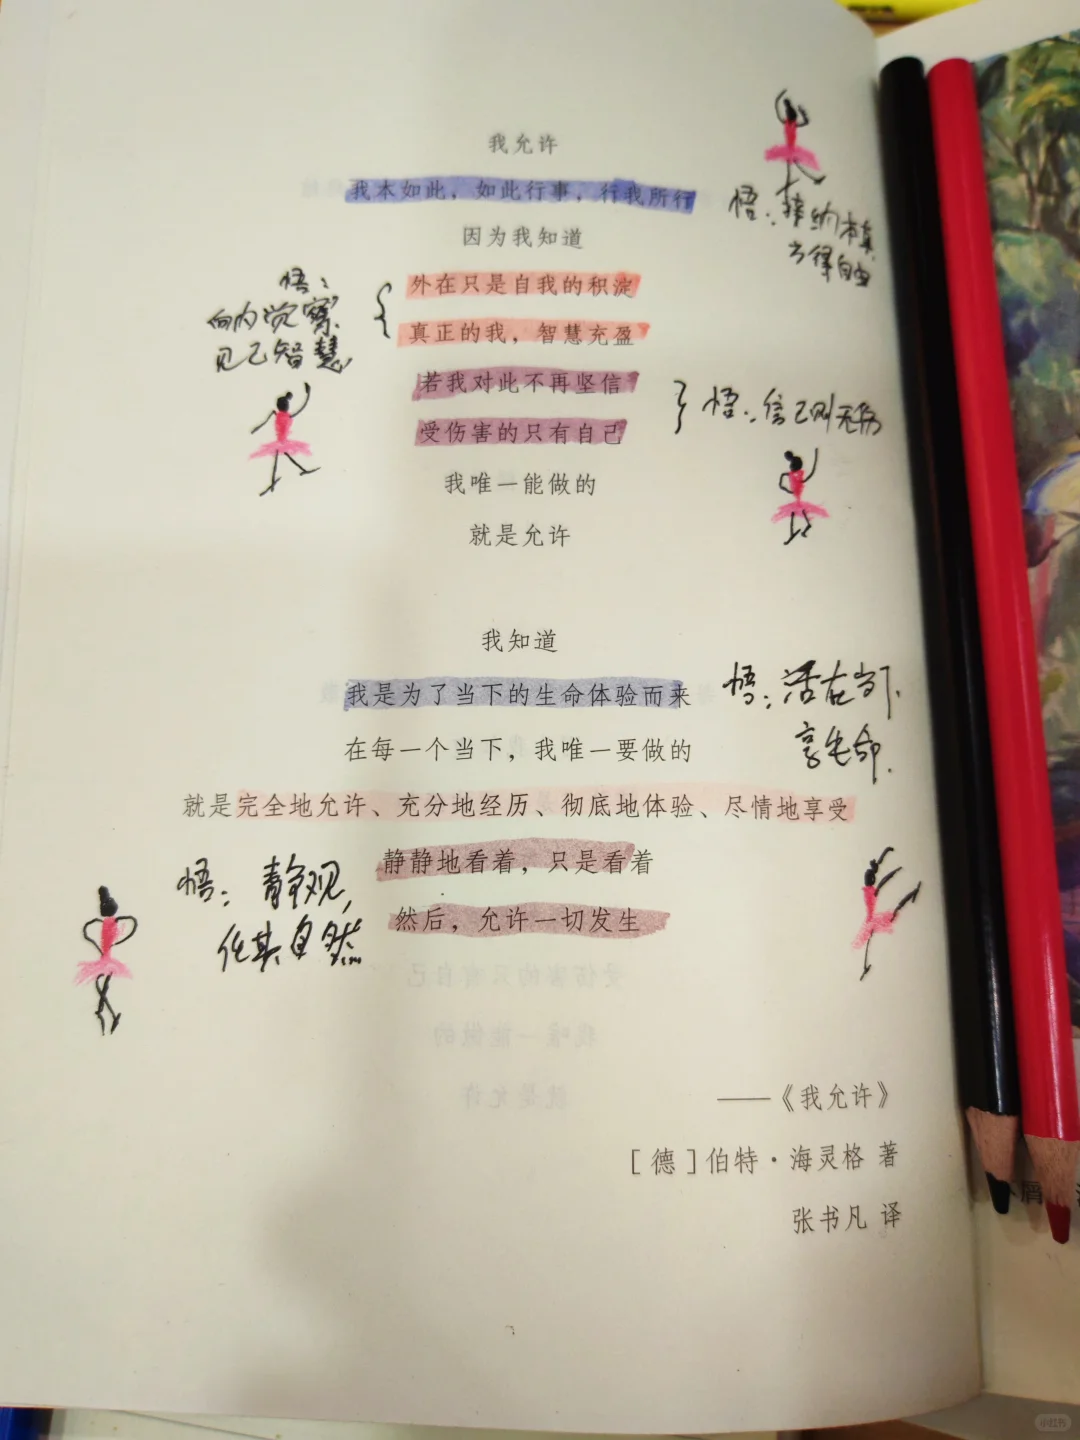 我允许
我本如此，如此行事，行我所行
悟：接纳本真
方得自由
因为我知道
外在只是自我的积淀
真正的我，智慧充盈
悟：
向内觉察
见己智慧
若我对此不再坚信
受伤害的只有自己
悟：信己则无伤
我唯一能做的
就是允许
我知道
我是为了当下的生命体验而来
悟：活在当下
享生命
在每一个当下，我唯一要做的
就是完全地允许、充分地经历、彻底地体验、尽情地享受
静静地看着，只是看着
然后，允许一切发生
悟：静观，
化其自然
——《我允许》
［德］伯特·海灵格 著
张书凡 译
小红书